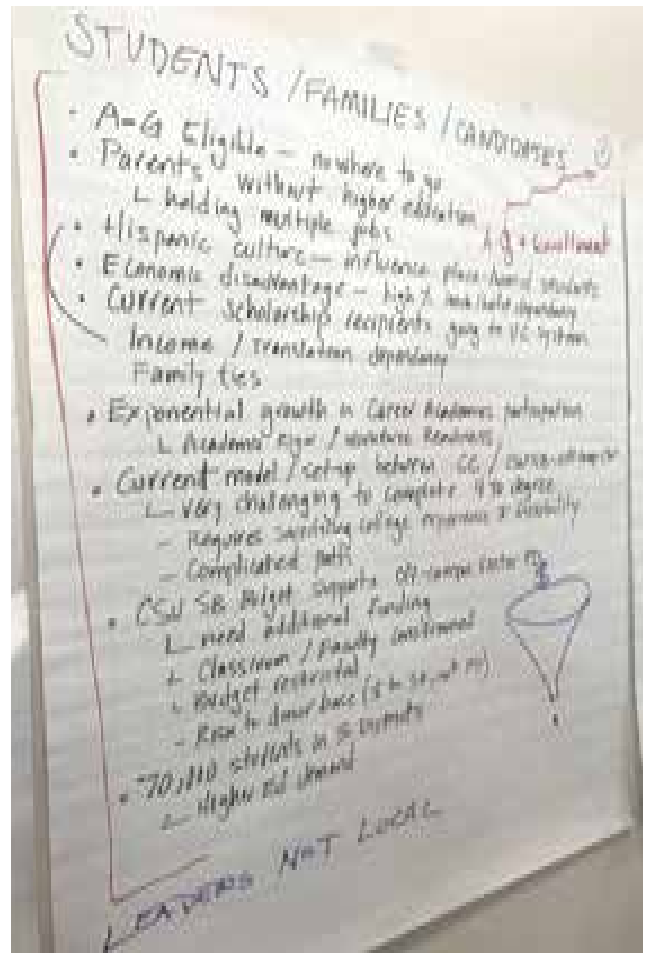 STUDENTS / FAMILIES / CANDIDATES
• A-G Eligible — nowhere to go
• Parents without higher education
L holding multiple jobs
A-g + Enrollment
• Hispanic culture — influence place-bound students
• Economic disadvantage — high %
• Current scholarship recipients going to UC system
Income / Translation dependency
Family ties
• Exponential growth in Career Academies participation
L Academic rigor / Readiness
• Current model / setup between CC /
L Very challenging to complete 4 yr degree
- Requires sacrificing college experience
- Complicated path
• CSU SB Budget supports off-campus center
L need additional funding
L Classroom / Faculty constrained
L Budget restricted
- Room to
• 70,000 students in 3 Districts
L Higher ed demand
LEADERS NOT LOCAL